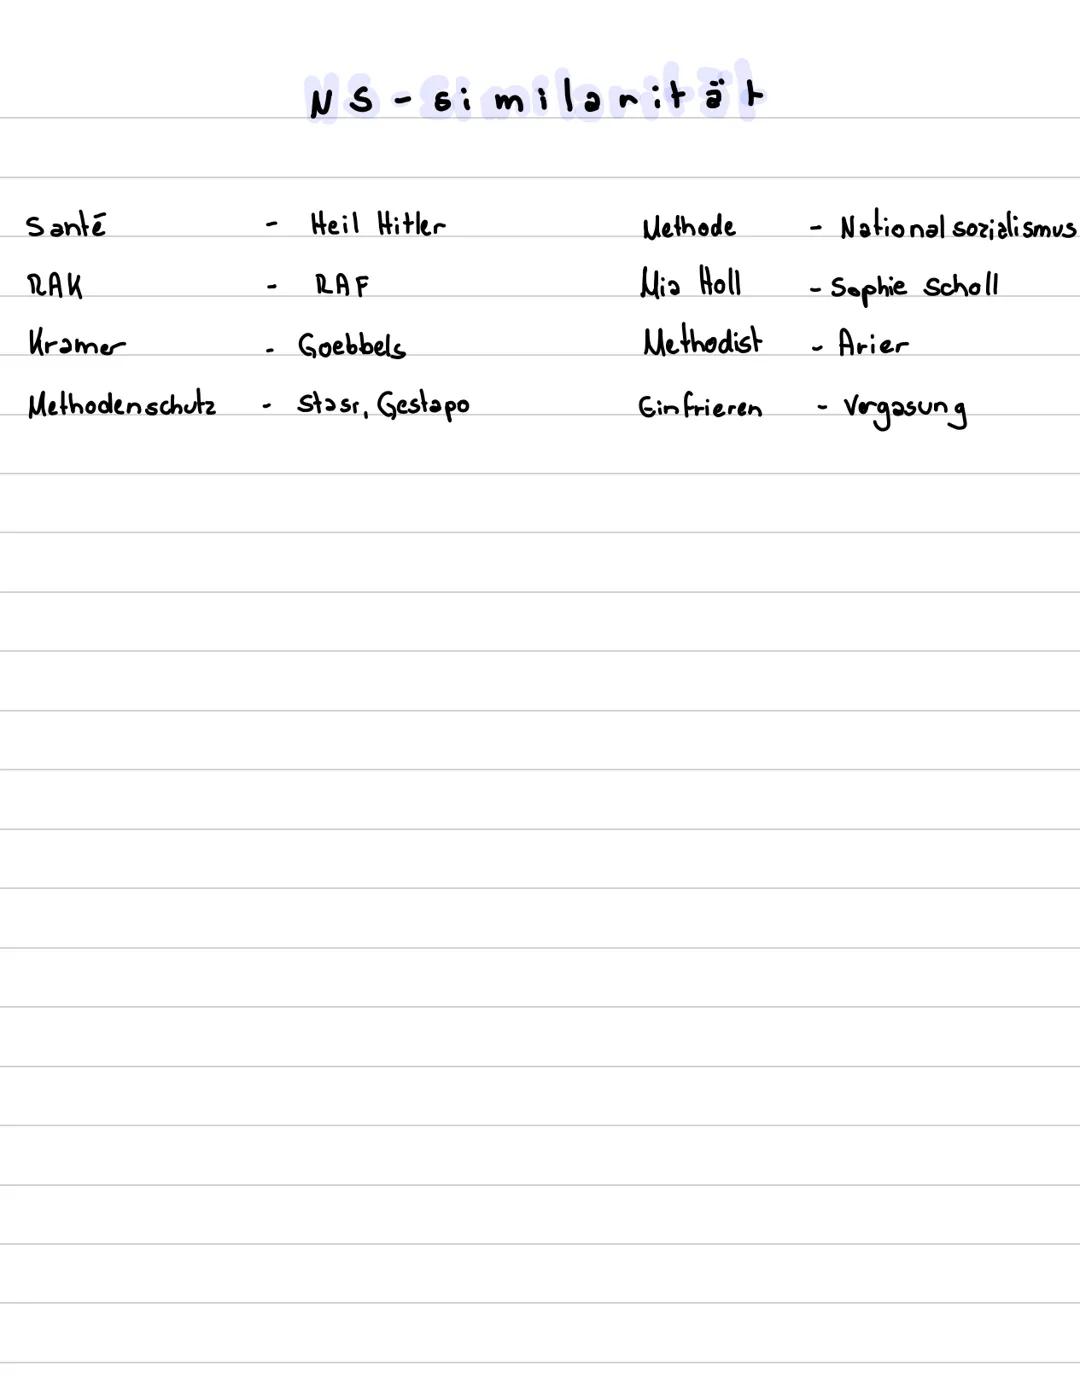 NS-Similarität
Santé - Heil Hitler Methode - Nationalsozialismus
RAK - RAF Mia Holl - Sophie Scholl
Kramer - Goebbels Methodist - Arier
Methodenschutz - Stasi, Gestapo Einfrieren - Vergasung